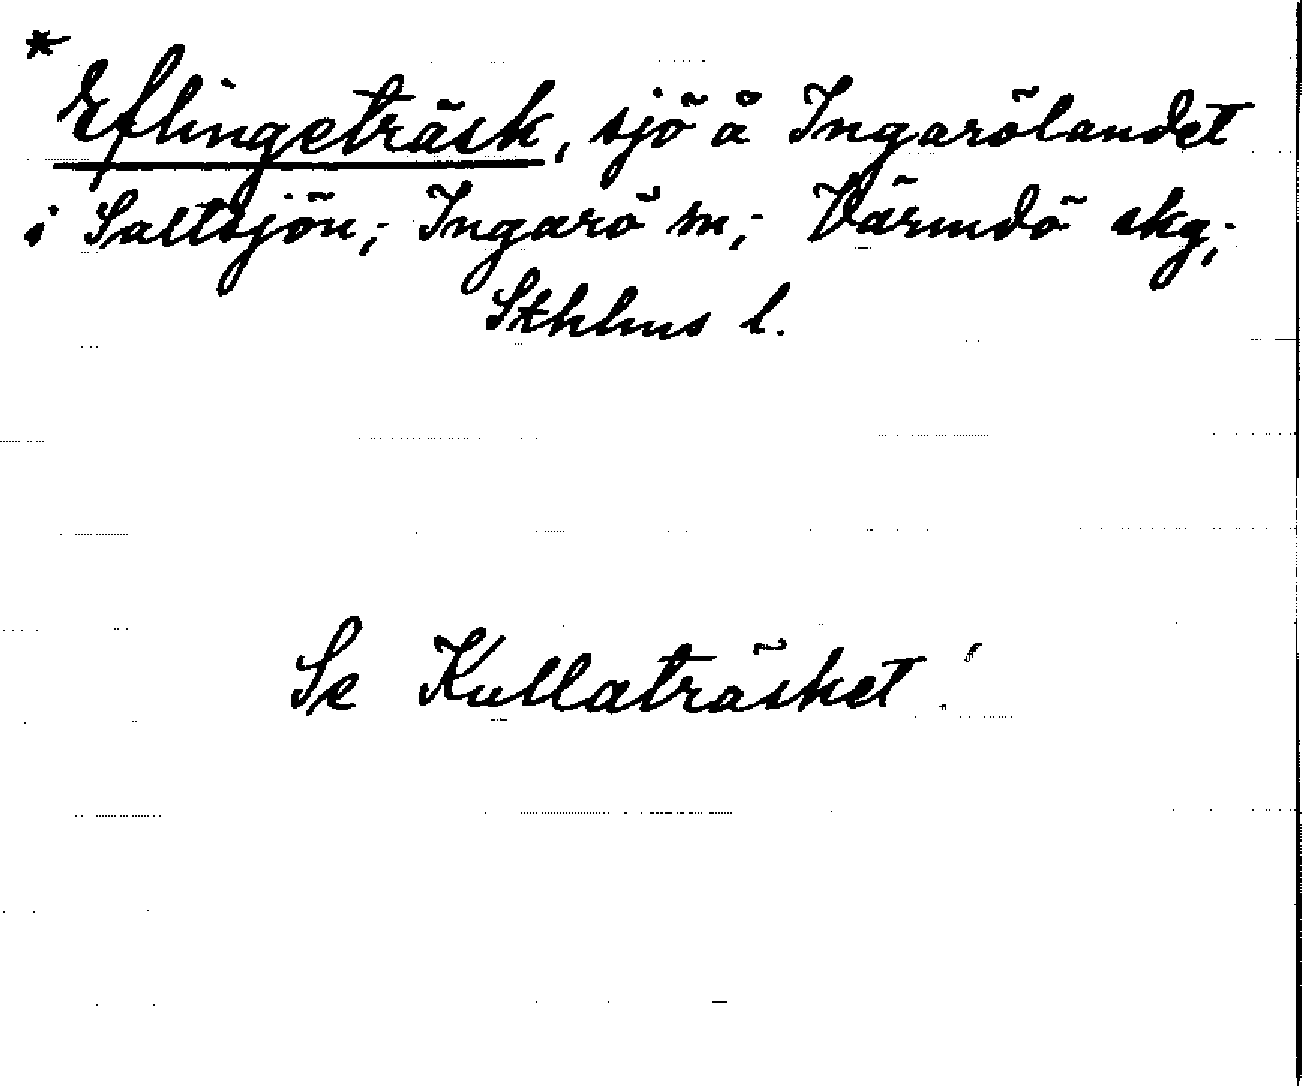 * Eflingeträsk, sjö å Ingarölandet
i Saltsjön;- Ingarö sn;- Värmdö skg;-
Sthlms l.
Se Kullaträsket!